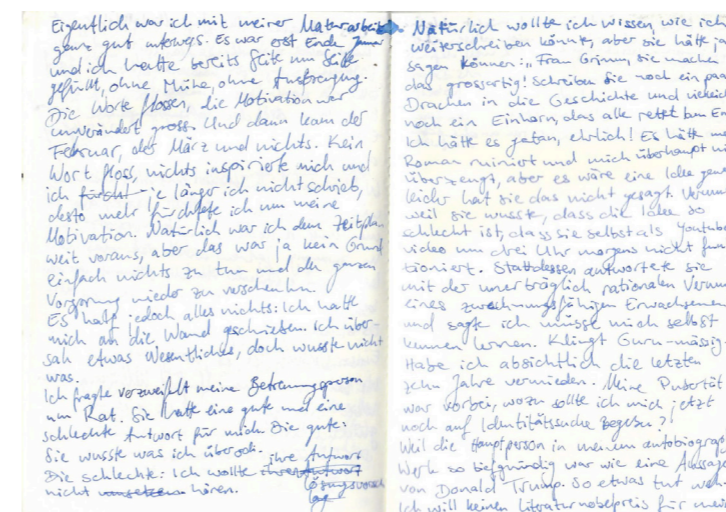 Eigentlich war ich mit meiner Maturarbeit
ganz gut unterwegs. Es war erst Ende Januar
und ich hatte bereits Seite um Seite
gefüllt, ohne Mühe, ohne Anstrengung.
Die Worte flossen, die Motivation war
unverändert gross. Und dann kam der
Februar, der März und nichts. Kein
Wort floss, nichts inspirierte mich und
ich je länger ich nicht schrieb,
desto mehr fürchtete ich um meine
Motivation. Natürlich war ich dem Zeitplan
weit voraus, aber das war ja kein Grund
einfach nichts zu tun und den ganzen
Vorsprung wieder zu verschenken.
Es half jedoch alles nichts: Ich hatte
mich an die Wand geschrieben. Ich über-
sah etwas Wesentliches, doch wusste nicht
was.
Ich fragte verzweifelt meine Betreuungsperson
um Rat. Sie hatte eine gute und eine
schlechte Antwort für mich. Die gute:
Sie wusste was ich übersah.
Die schlechte: Ich wollte ihre Antwort
nicht umsetzen hören.
Natürlich wollte ich wissen, wie ich
weiterschreiben könnte, aber sie hätte ja
sagen können: "Frau Grimm, sie machen
das grossartig! Schreiben Sie noch ein paar
Drachen in die Geschichte und vielleicht
noch ein Einhorn, das alle rettet
Ich hätte es getan, ehrlich! Es hätte
Roman ruiniert und mich überhaupt
überzeugt, aber es wäre eine Idee
leider hat sie das nicht gesagt.
weil sie wusste, dass die Idee so
schlecht ist, dass sie selbst als Youtube
video um drei Uhr morgens nicht funk
tioniert. Stattdessen antwortete sie
mit der unerträglich rationalen
eines zurechnungsfähigen Erwachsenen
und sagte ich müsste mich selbst
kennen lernen. Klingt Guru-mässig.
Habe ich absichtlich die letzten
zehn Jahre vermieden. Meine Pubertät
war vorbei, wozu sollte ich mich jetzt
noch auf Identitätssuche begeben?!
Weil die Hauptperson in meinem
Werk so tiefgründig war wie eine Aussage
von Donald Trump. So etwas tut weh.
Ich will keinen Literaturnobelpreis für